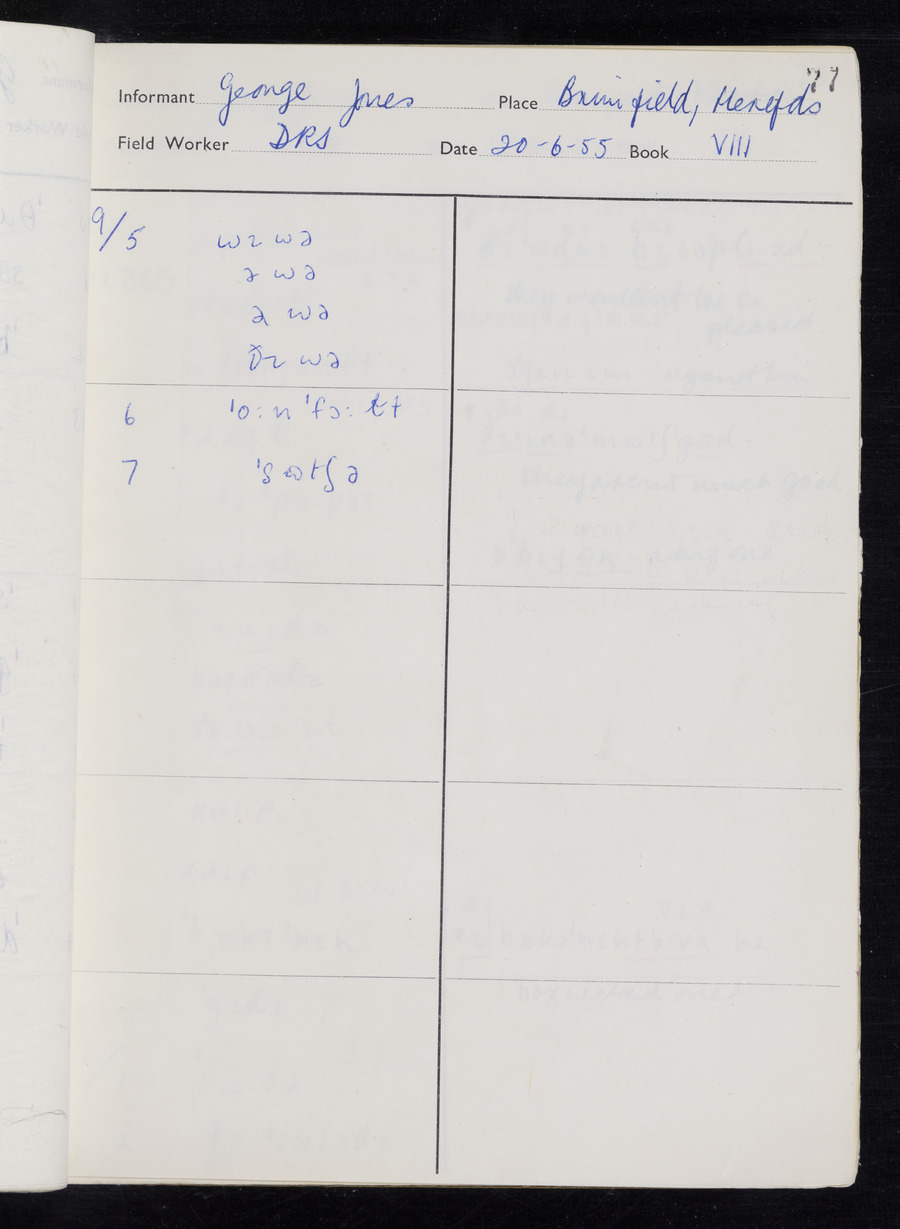 77
Informant George Jones Place Brimfield, Herefds
Field Worker DRS Date 20-6-55 Book VIII
9/5 wɪ wə
ə wə
ə wə
ðɪ wə
6 ˈoːn ˈfɔːɫt
7 ˈgɷtʃə